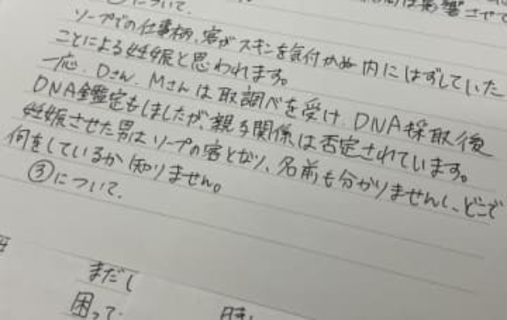 について.
は影響させて
ソープでの仕事柄、客がスキンを気付かぬ内にはずしていた
ことによる妊娠と思われます。
一応、Dさん、Mさんは取調べを受け、DNA採取後
DNA鑑定もしましたが、親子関係は否定されています。
妊娠させた男はソープの客となり、名前も分かりませんし、どこで
何をしているか知りません。
③について.
まだし
困って